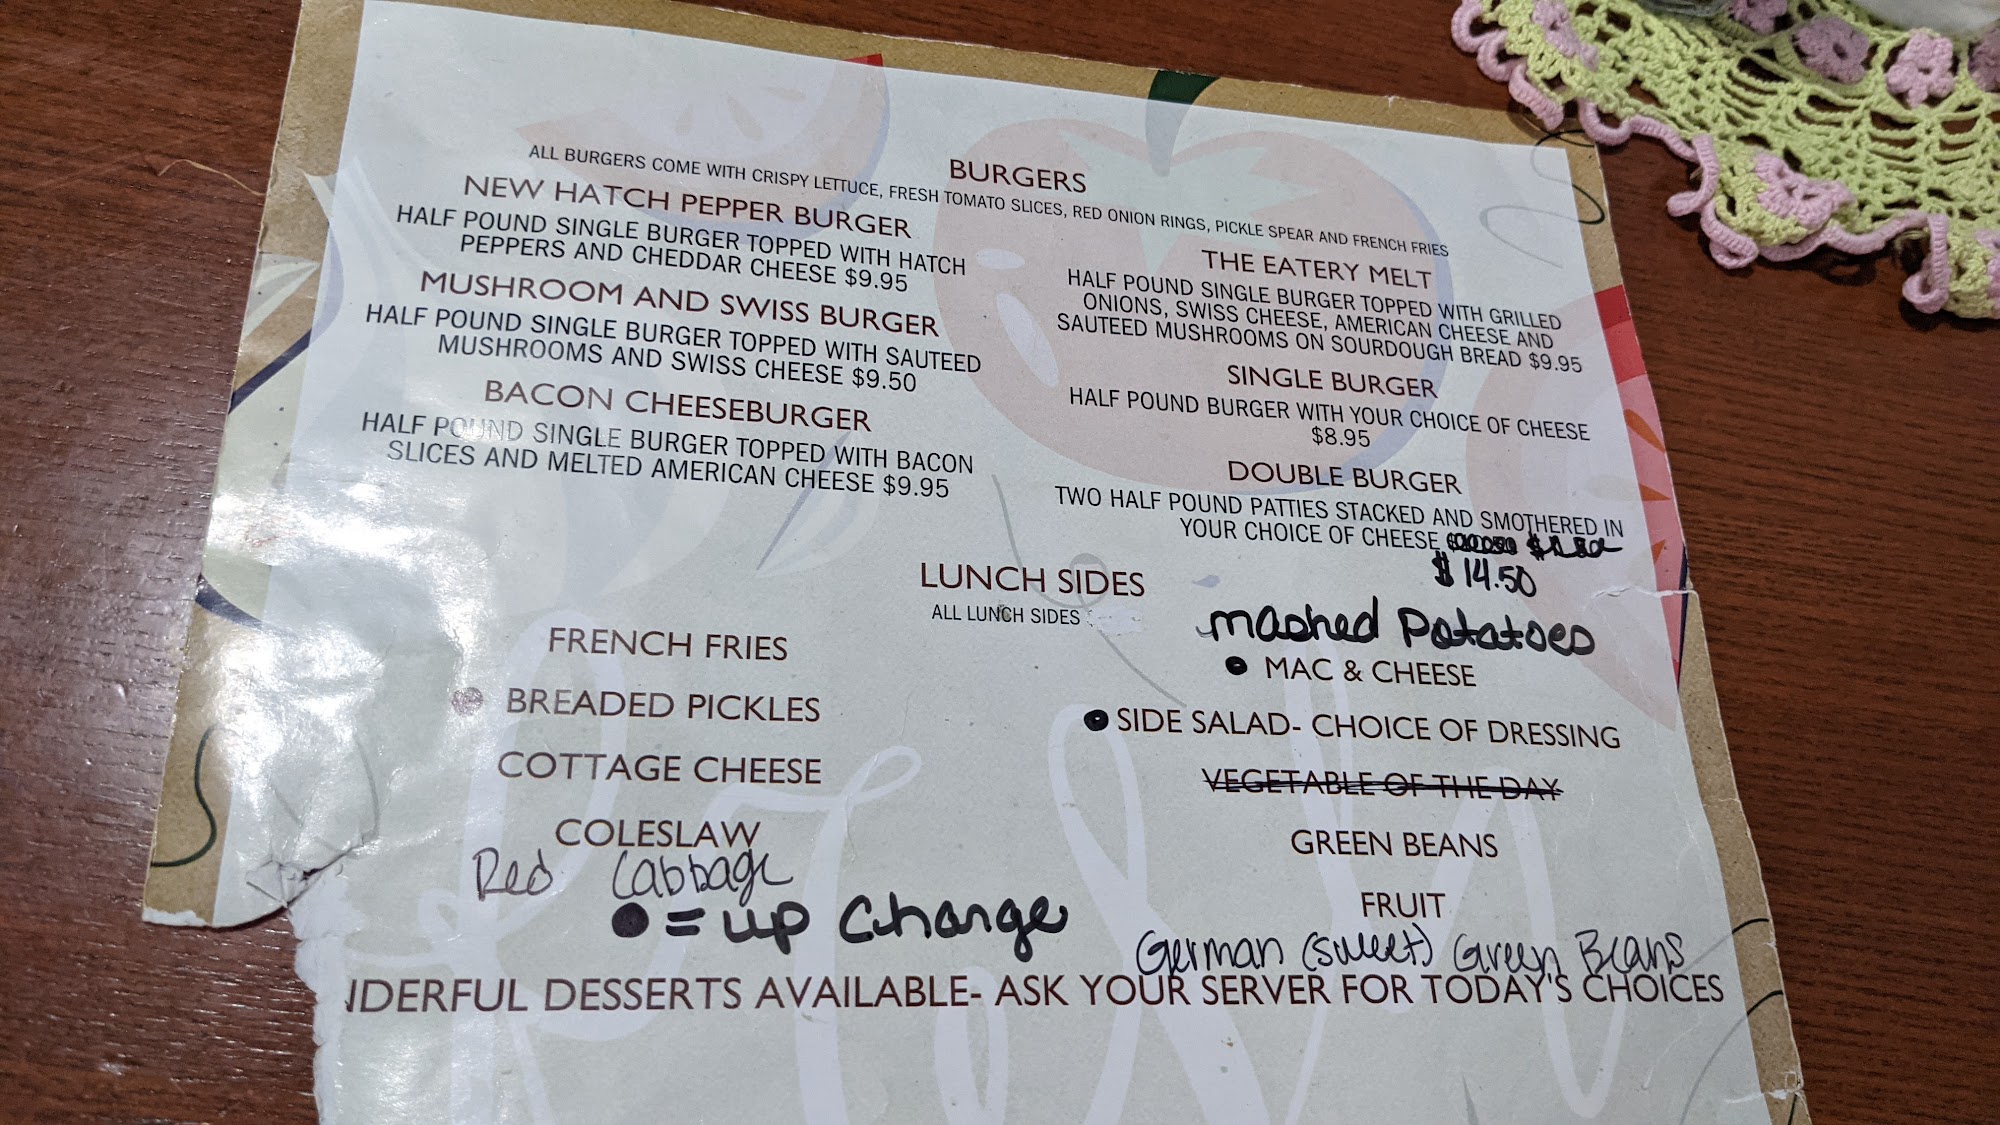 BURGERS
ALL BURGERS COME WITH CRISPY LETTUCE, FRESH TOMATO SLICES, RED ONION RINGS, PICKLE SPEAR AND FRENCH FRIES
NEW HATCH PEPPER BURGER
HALF POUND SINGLE BURGER TOPPED WITH HATCH
PEPPERS AND CHEDDAR CHEESE $9.95
MUSHROOM AND SWISS BURGER
HALF POUND SINGLE BURGER TOPPED WITH SAUTEED
MUSHROOMS AND SWISS CHEESE $9.50
BACON CHEESEBURGER
HALF POUND SINGLE BURGER TOPPED WITH BACON
SLICES AND MELTED AMERICAN CHEESE $9.95
THE EATERY MELT
HALF POUND SINGLE BURGER TOPPED WITH GRILLED
ONIONS, SWISS CHEESE, AMERICAN CHEESE AND
SAUTEED MUSHROOMS ON SOURDOUGH BREAD $9.95
SINGLE BURGER
HALF POUND BURGER WITH YOUR CHOICE OF CHEESE
$8.95
DOUBLE BURGER
TWO HALF POUND PATTIES STACKED AND SMOTHERED IN
YOUR CHOICE OF CHEESE
$14.50
LUNCH SIDES
ALL LUNCH SIDES
FRENCH FRIES
● BREADED PICKLES
COTTAGE CHEESE
COLESLAW
Red Cabbage
● = up Charge
mashed Potatoes
● MAC & CHEESE
● SIDE SALAD- CHOICE OF DRESSING
VEGETABLE OF THE DAY
GREEN BEANS
FRUIT
German (sweet) Green Beans
NDERFUL DESSERTS AVAILABLE- ASK YOUR SERVER FOR TODAY'S CHOICES